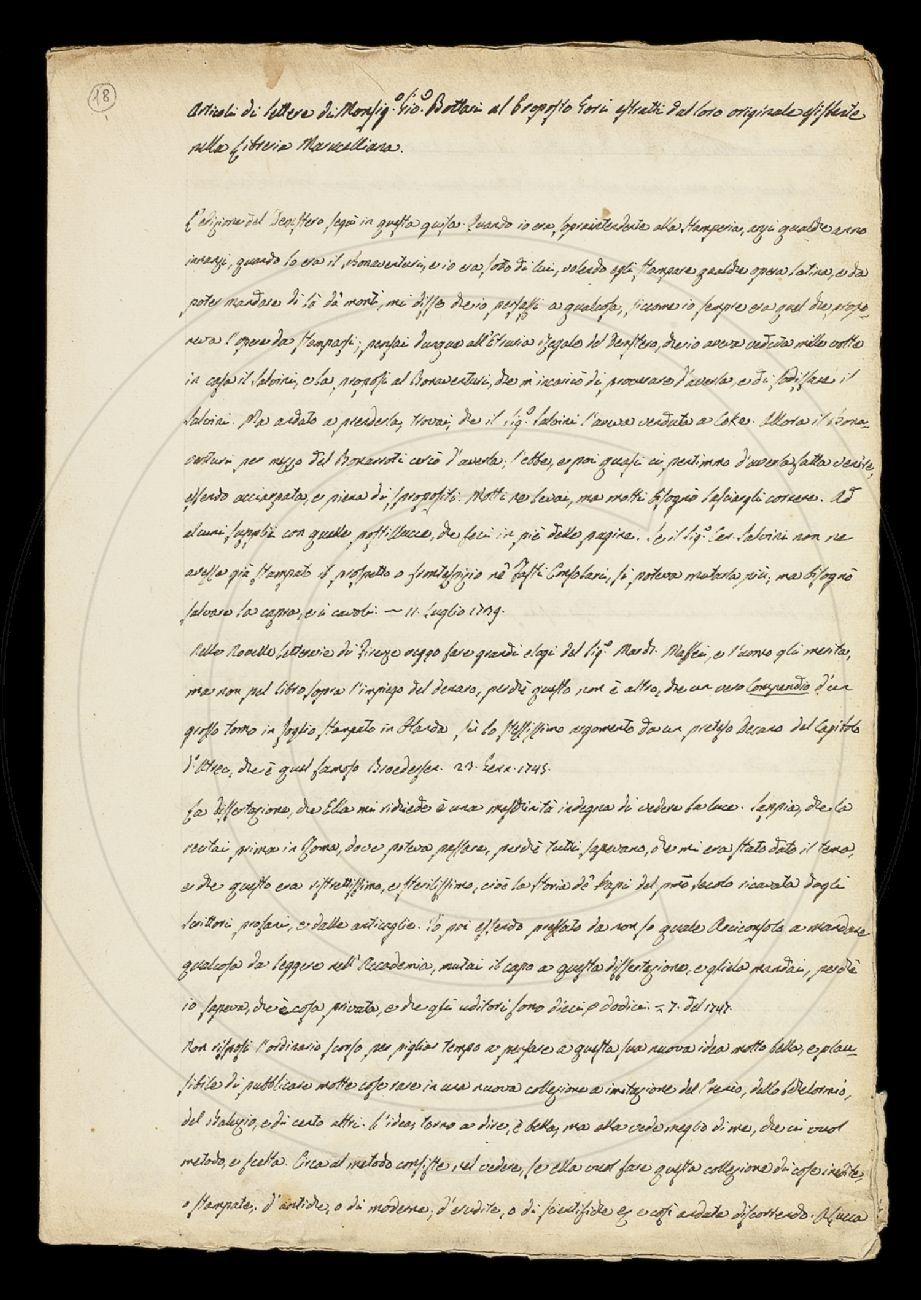 18
Articoli di lettere di Monsig.r Gio. Bottari al Proposto Gori estratti dal loro originale esistente
nella Libreria Marucelliana.
L'edizione del Demstero seguì in questa guisa. Quando io era soprintendente alla stamperia, anzi qualche anno
innanzi, quando lo era il Bonaventuri, e io era sotto di lui, volendo egli stampare qualche opera latina, e da
poter mandare di là da' monti, mi disse che io pensassi a qualcosa, siccome io sempre era quel che propo-
neva l'opere da stamparsi; pensai dunque all'Etruria Regale del Demstero, che io aveva veduta mille volte
in casa il Salvini, e la proposi al Bonaventuri, che m'incaricò di procurare d'averla, e di sodisfare il
Salvini. Ma andato a prenderla, trovai, che il sig.r Salvini l'aveva venduta a Coke. Allora il Bona-
venturi per mezzo del Bonarroti cercò d'averla. l'ebbe, e poi quasi ci pentimmo d'averla fatta venire,
essendo acciarpata, e piena di spropositi. Molti ne levai, ma molti bisognò lasciargli correre. Ad
alcuni supplii con quelle postillucce, che feci in piè delle pagine. Se il sig.r Can. Salvini non ne
avesse già stampato il prospetto o frontespizio ne' Fasti Consolari, si poteva mutarla più, ma bisognò
salvare la capra, e i cavoli. — 11. Luglio 1739.
Nelle Novelle Letterarie di Firenze veggo fare grandi elogi del sig.r March. Maffei, e l'uomo gli merita,
ma non pel libro sopra l'impiego del denaro, perchè questo non è altro, che un vero Compendio d'un
grosso tomo in foglio stampato in Olanda sù lo stessissimo argomento da un preteso Decano del Capitolo
d'Utrec, che è quel famoso Broedersen. 23. Genn. 1745.
La Dissertazione, che Ella mi richiede è una meschinità indegna di vedere la luce. Sappia, che la
recitai prima in Roma, dove poteva passare, perchè tutti sapevano, che mi era stato dato il tema,
e che questo era ristrettissimo, e sterilissimo, cioè la storia de' Papi del p.mo secolo ricavata dagli
scrittori profani, e dalle anticaglie. Io poi essendo pressato da non so quale Arciconsolo a mandare
qualcosa da leggere nell'Accademia, mutai il capo a questa dissertazione, e gliela mandai, perchè
io sapeva, che è cosa privata, e che gli uditori sono dieci o dodici. — 7. del 1747.
Non risposi l'ordinario scorso per pigliar tempo a pensare a questa sua nuova idea molto bella, e plau-
sibile di pubblicare molte cose rare in una nuova collezione a imitazione del Grevio, dello
del Baluzio, e di cento altri. L'idea, torno a dire, è bella, ma ella vede meglio di me, che ci vuol
metodo, e scelta. Circa al metodo consiste nel vedere, se ella vuol fare questa collezione di cose inedite,
o stampate, d'antiche, o di moderne, d'erudite, o di scientifiche e così andate discorrendo. A Lucca